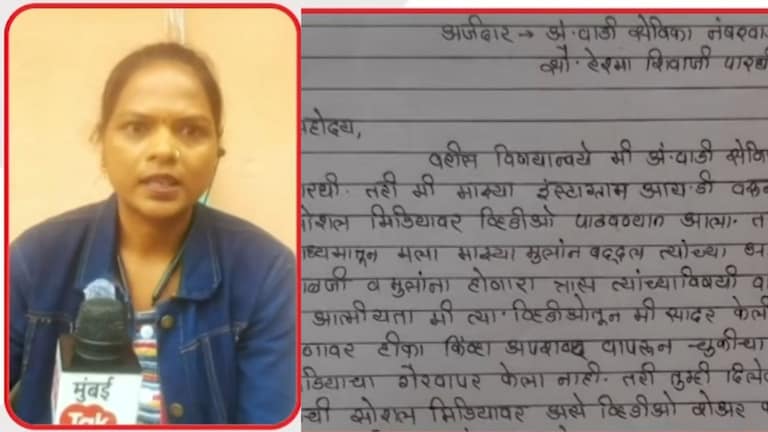 अर्जदार → अं.वाडी सेविका नंबरवा
सौ. हेश्मा शिवाजी पारधी
महोदय,
वरील विषयान्वये मी अं.वाडी सेवि
पारधी. तरी मी माझ्या इंस्टाग्राम आय.डी वरुन
सोशल मिडियावर व्हिडीओ पाठवण्यात आला. त
माध्यमातून मला माझ्या मुलांन बद्दल त्यांच्या
काळजी व मुलांना होणारा त्रास त्यांच्याविषयी
आत्मीयता मी त्या व्हिडीओतून मी सादर केली
टीका किंवा अपशब्द वापरून चुकीचा
मिडियाचा गैरवापर केला नाही. तरी तुम्ही दिले
ची सोशल मिडियावर असे व्हिडीओ शेअर
मुंबई
Tak